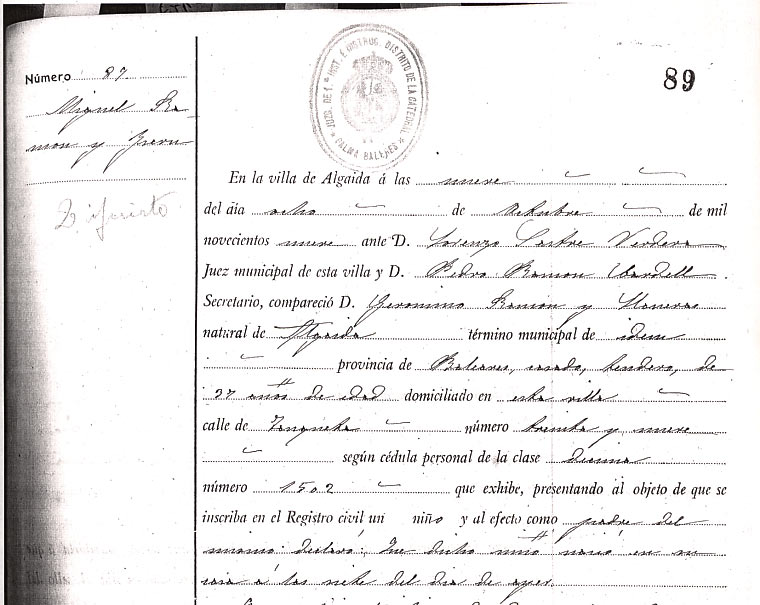 Número 87
Miguel Ra-
mon y
89
JUZG. DE 1ª INST. É INSTRUC. DISTRITO DE LA CATEDRAL
PALMA BALEARES
En la villa de Algaida á las nueve
del día ocho de Octubre de mil
novecientos nueve ante D. Lorenzo Sastre Verdera
Juez municipal de esta villa y D. Pedro Ramon
Secretario, compareció D. Geronimo Ramon y
natural de Algaida término municipal de idem
provincia de Baleares, casado, tendero, de
37 años de edad domiciliado en esta villa
calle de Tanqueta número treinta y nueve
según cédula personal de la clase
número 1502 que exhibe, presentando al objeto de que se
inscriba en el Registro civil un niño y al efecto como padre del
mismo declaró: Que dicho niño nació en su
casa á las siete del dia de ayer.